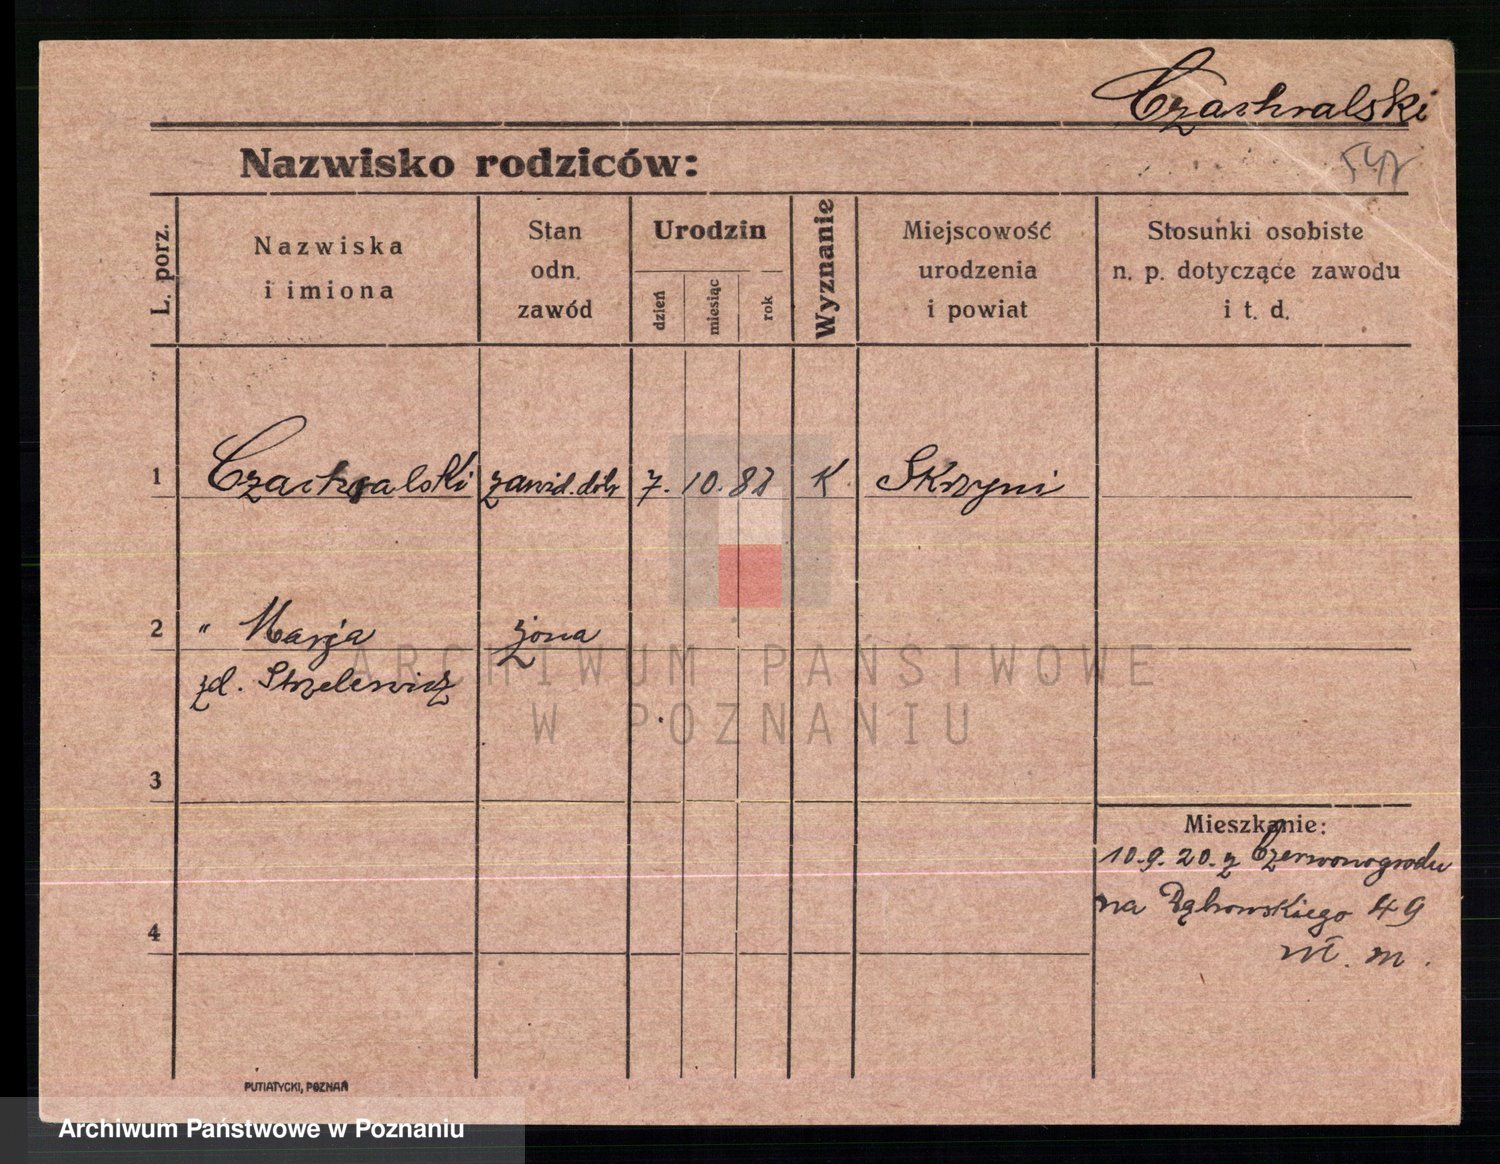 Czachralski
Nazwisko rodziców:
L. porz.
Nazwiska
i imiona
Stan
odn.
zawód
Urodzin
dzień
miesiąc
rok
Wyznanie
Miejscowość
urodzenia
i powiat
Stosunki osobiste
n. p. dotyczące zawodu
i t. d.
1 Czachralski zawid. dóbr 7. 10. 82 K Skrzyni
2 " Marja żona
zd. Strzelewicz
3
Mieszkanie:
10.9.20. z Czerwonogrodu
na Dąbrowskiego 49
wł. m.
4
PUTIATYCKI, POZNAŃ
ARCHIWUM PAŃSTWOWE
W POZNANIU
Archiwum Państwowe w Poznaniu